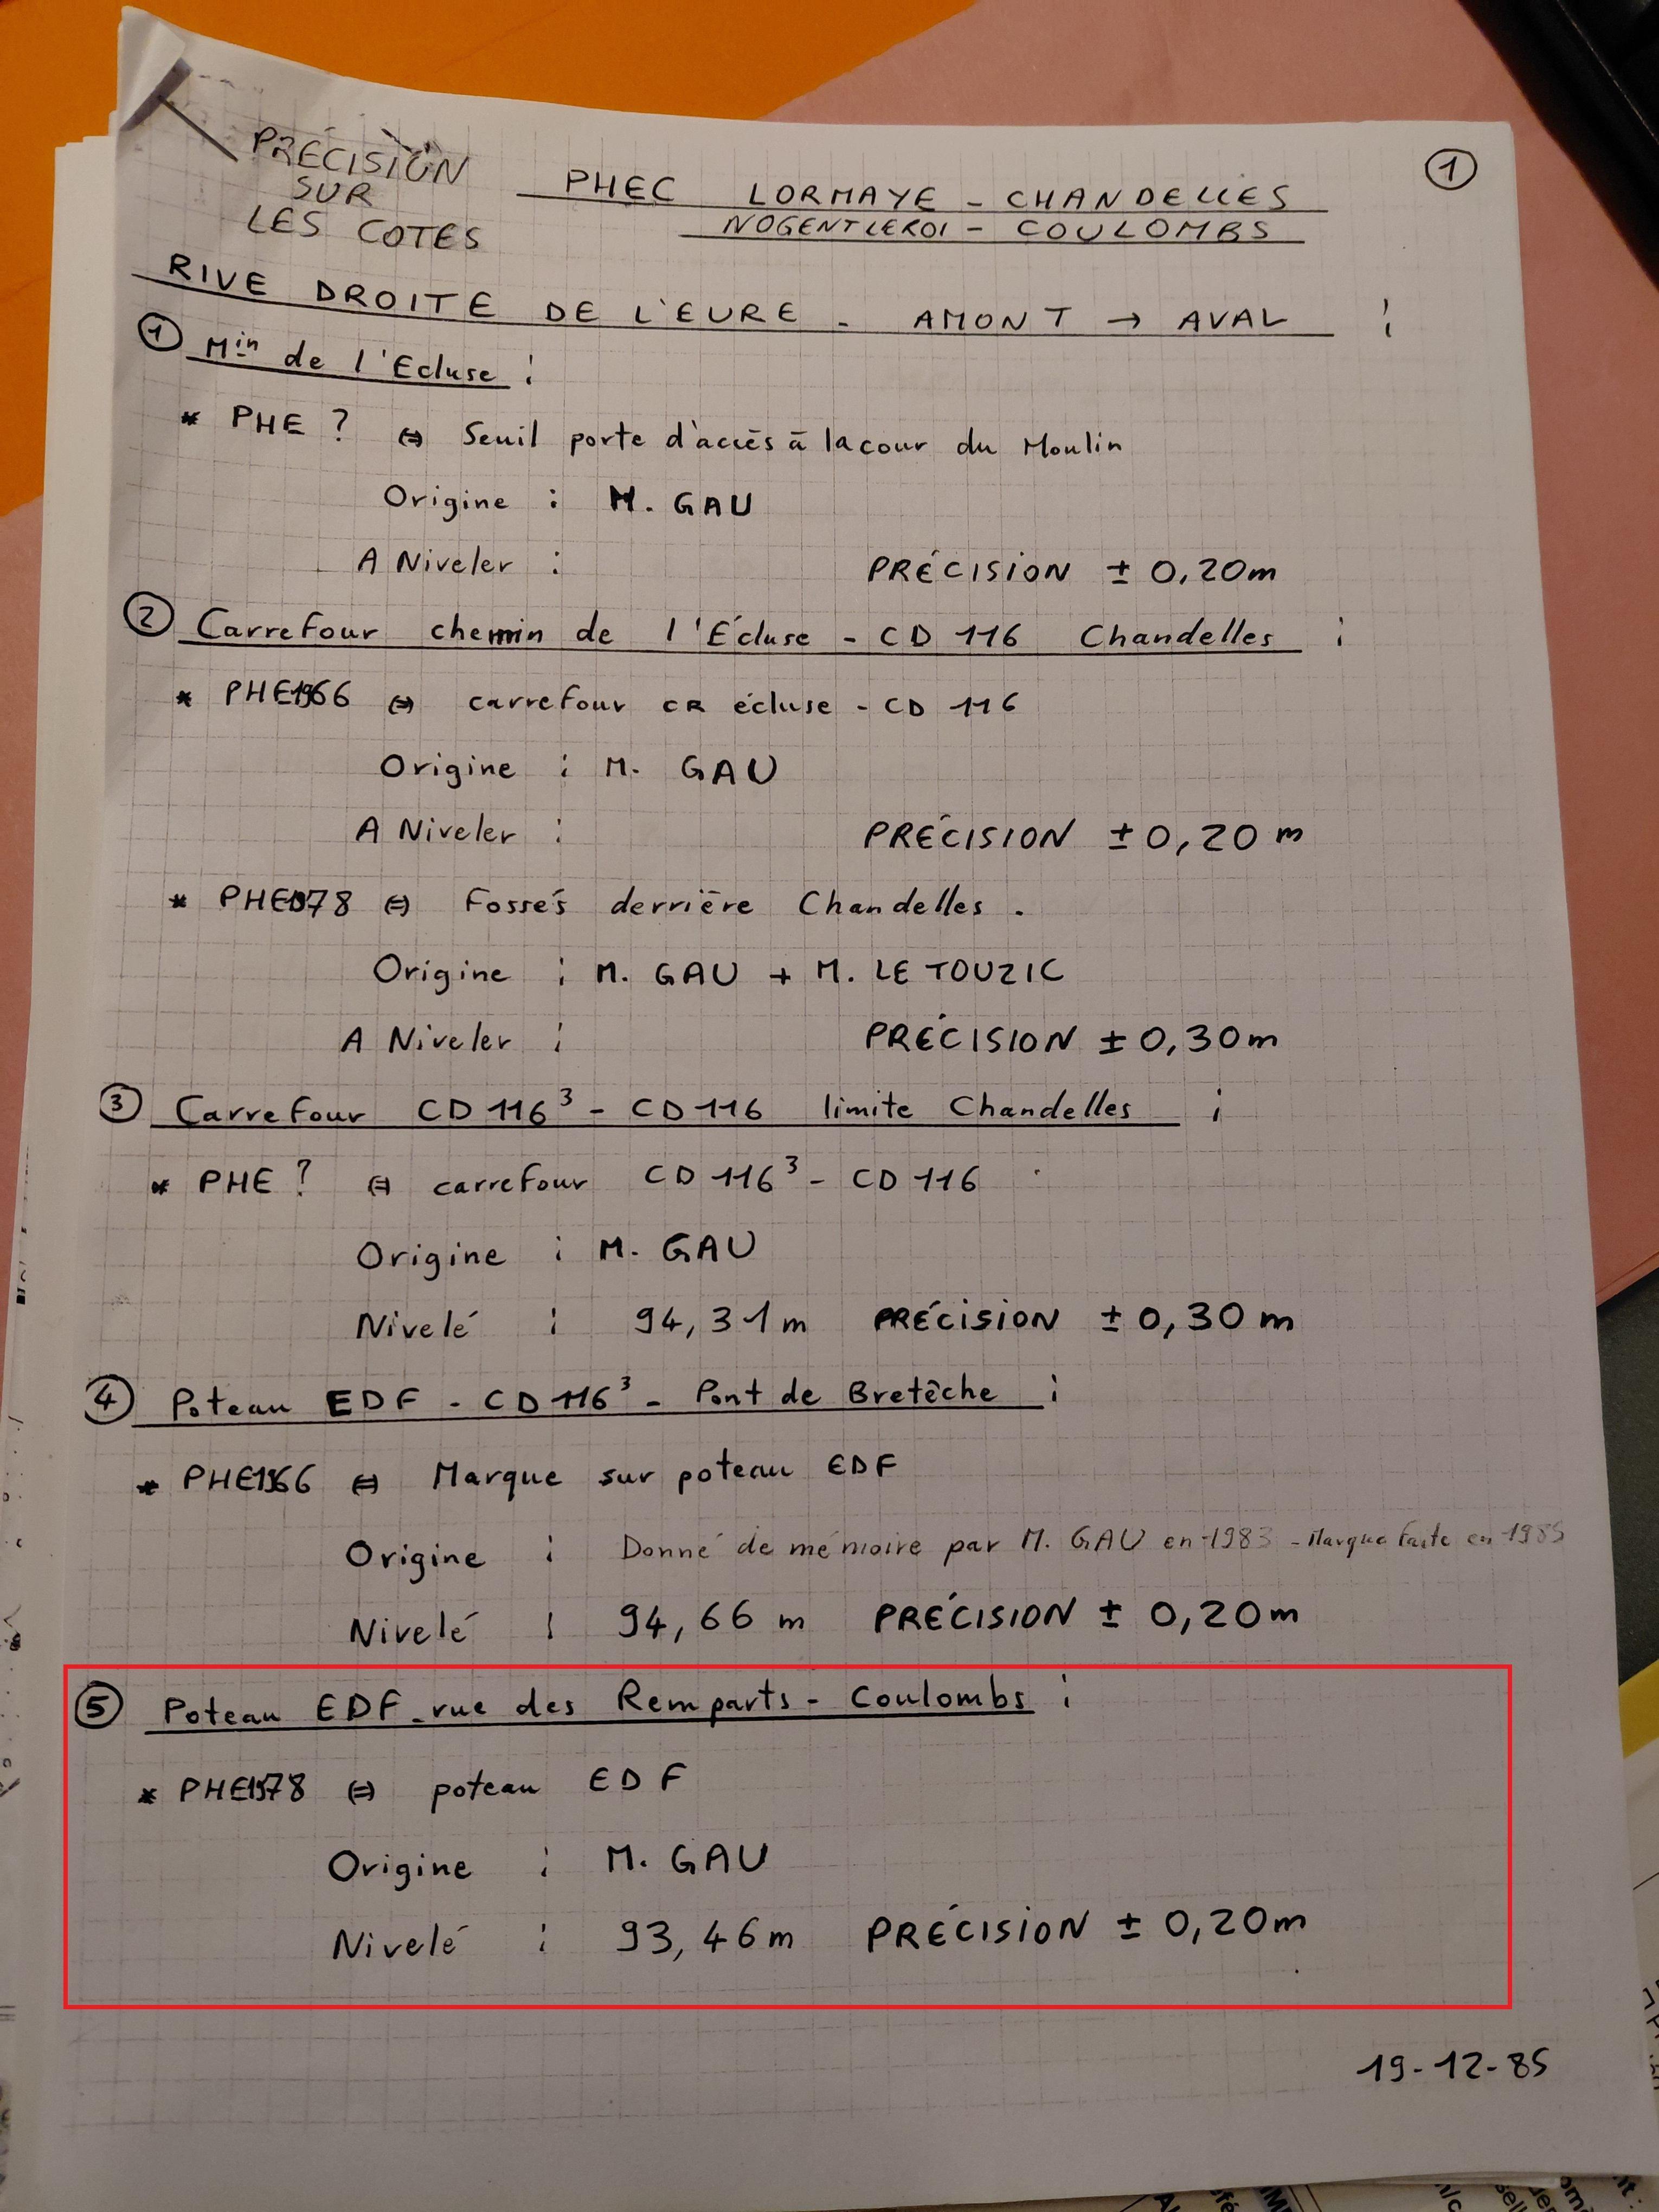 PRÉCISION
SUR
LES COTES
PHEC LORMAYE - CHANDELLES
NOGENT LE ROI - COULOMBS
1
RIVE DROITE DE L'EURE - AMONT → AVAL :
① Min de l'Ecluse :
* PHE ? ⇔ Seuil porte d'accès à la cour du Moulin
Origine : M. GAU
A Niveler : PRÉCISION ± 0,20m
② Carrefour chemin de l'Écluse - CD 116 Chandelles :
* PHE1966 ⇔ carrefour CR écluse - CD 116
Origine : M. GAU
A Niveler : PRÉCISION ± 0,20 m
* PHE1978 ⇔ Fossés derrière Chandelles .
Origine : M. GAU + M. LE TOUZIC
A Niveler : PRÉCISION ± 0,30m
③ Carrefour CD 116³ - CD 116 limite Chandelles :
* PHE ? ⇔ carrefour CD 116³ - CD 116
Origine : M. GAU
Nivelé : 94,31m PRÉCISION ± 0,30 m
④ Poteau EDF - CD 116³ - Pont de Bretêche :
* PHE1966 ⇔ Marque sur poteau EDF
Origine : Donné de mémoire par M. GAU en 1983 - Marque faite en 1985
Nivelé : 94,66 m PRÉCISION ± 0,20m
⑤ Poteau EDF - rue des Remparts - Coulombs :
* PHE1978 ⇔ poteau EDF
Origine : M. GAU
Nivelé : 93,46m PRÉCISION ± 0,20m
19-12-85